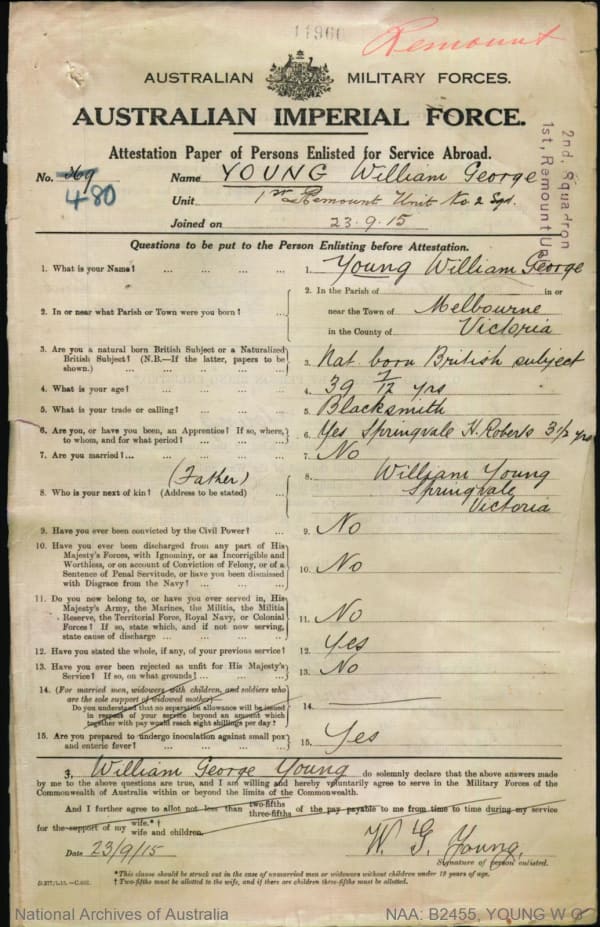 11960
Remount
AUSTRALIAN MILITARY FORCES.
AUSTRALIAN IMPERIAL FORCE.
Attestation Paper of Persons Enlisted for Service Abroad.
No. 369 Name YOUNG William George
480
Unit 1st Remount Unit No 2 Sqd.
Joined on 23.9.15
2nd. Squadron
1st. Remount Unit
Questions to be put to the Person Enlisting before Attestation.
1. What is your Name? ... ... ... ... 1. Young William George
2. In or near what Parish or Town were you born? ... 2. In the Parish of in or
near the Town of Melbourne
in the County of Victoria
3. Are you a natural born British Subject or a Naturalized
British Subject? (N.B.—If the latter, papers to be
shown.) ... ... ... ... 3. Nat. born British subject
4. What is your age? ... ... ... ... 4. 39 7/12 yrs
5. What is your trade or calling? ... ... ... 5. Blacksmith
6. Are you, or have you been, an Apprentice? If so, where,
to whom, and for what period? ... ... ... 6. Yes Springvale H. Roberts 3½ yrs
7. Are you married?... ... ... ... 7. No
(Father)
8. Who is your next of kin? (Address to be stated) ... 8. William Young
Springvale
Victoria
9. Have you ever been convicted by the Civil Power? ... 9. No
10. Have you ever been discharged from any part of His
Majesty's Forces, with Ignominy, or as Incorrigible and
Worthless, or on account of Conviction of Felony, or of a
Sentence of Penal Servitude, or have you been dismissed
with Disgrace from the Navy? ... ... ... 10. No
11. Do you now belong to, or have you ever served in, His
Majesty's Army, the Marines, the Militia, the Militia
Reserve, the Territorial Force, Royal Navy, or Colonial
Forces? If so, state which, and if not now serving,
state cause of discharge ... ... ... 11. No
12. Have you stated the whole, if any, of your previous service? 12. Yes
13. Have you ever been rejected as unfit for His Majesty's
Service? If so, on what grounds? ... ... 13. No
14. (For married men, widowers with children, and soldiers who
are the sole support of widowed mother)—
Do you understand that no separation allowance will be issued
in respect of your service beyond an amount which
together with pay would reach eight shillings per day? 14.
15. Are you prepared to undergo inoculation against small pox
and enteric fever? ... ... ... ... 15. Yes
I, William George Young do solemnly declare that the above answers made
by me to the above questions are true, and I am willing and hereby voluntarily agree to serve in the Military Forces of the
Commonwealth of Australia within or beyond the limits of the Commonwealth.
And I further agree to allot not less than two-fifths three-fifths of the pay payable to me from time to time during my service
for the support of my wife.*† wife and children.
Date 23/9/15 W. G. Young.
Signature of person enlisted.
*This clause should be struck out in the case of unmarried men or widowers without children under 18 years of age.
†Two-fifths must be allotted to the wife, and if there are children three-fifths must be allotted.
National Archives of Australia NAA: B2455, YOUNG W G